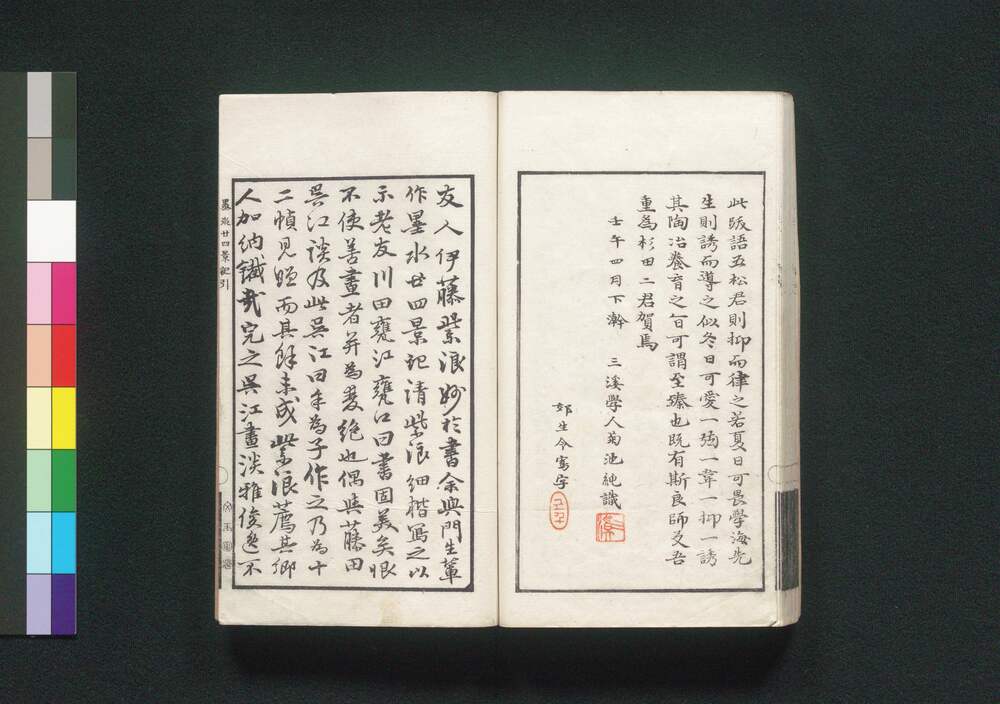 此跋語五松君則抑而律之若夏日可畏學海先
生則誘而導之似冬日可愛一弛一韋一抑一誘
其陶冶養育之旨可謂至臻也既有斯良師及吾
重為杉田二君賀焉
壬午四月下澣
三溪學人菊池純識
友人伊藤紫浪妙於書余與門生輩
作墨水廿四景記請紫浪細楷寫之以
示老友川田甕江甕江曰書固美矣恨
不使善畫者并為雙絶也偶與藤田
呉江談及此呉江曰余為子作之乃為十
二幀見贈而其餘未成紫浪薦其鄉
人加納鐵哉完之呉江畫淡雅俊逸不
墨水廿四景記引